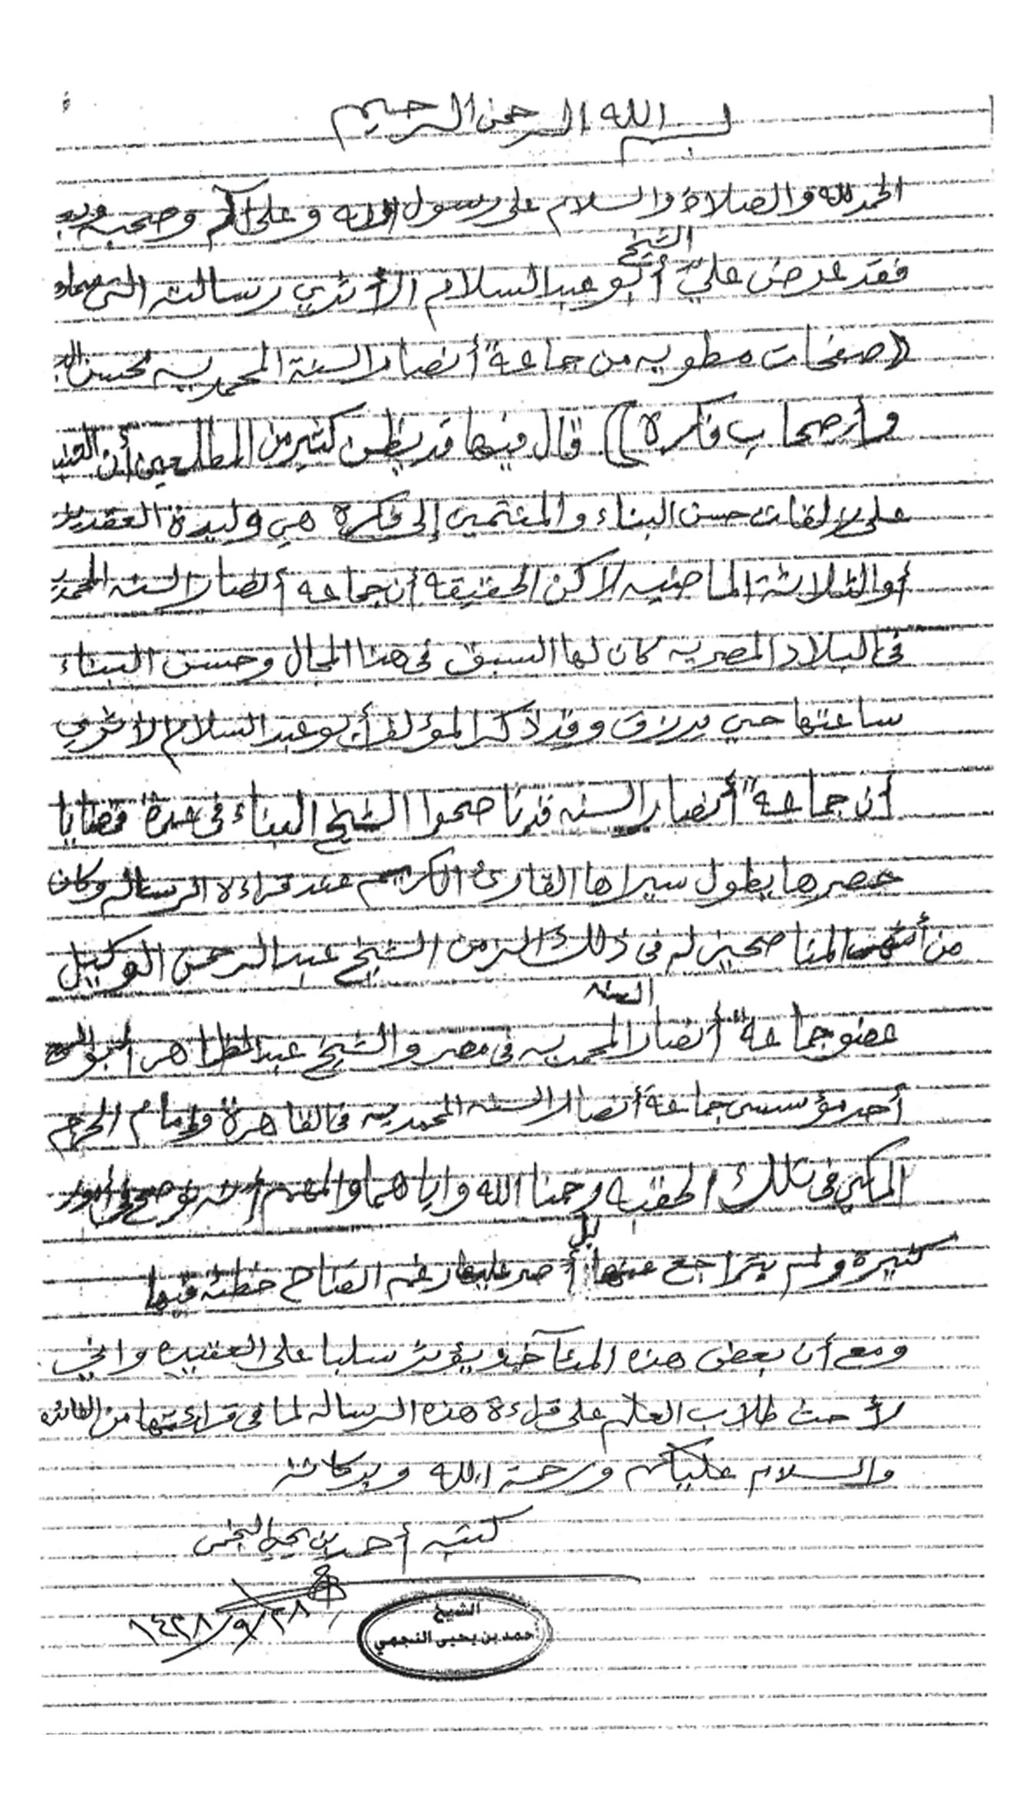 بسم الله الرحمن الرحيم
الحمد لله والصلاة والسلام على رسول الله وعلى آله وصحبه وبعد
فقد عرض عليّ الشيخ أبو عبدالسلام الأثري رسالته التي سماها
((صفحات مطويه من جماعة أنصار السنة المحمديه لحسن البنا
وأصحاب فكره)) قال فيها قد يظن كثير من المطالعين أن
على مؤلفات حسن البناء والمنتمين إلى فكره هي وليدة العقدين
أو الثلاثة الماضيه لاكن الحقيقة أن جماعة أنصار السنه المحمديه
في البلاد المصريه كان لها السبق في هذا المجال وحسن البناء
ساعتها حي يرزق وقد ذكر المؤلف أبو عبد السلام الأثري
أن جماعة أنصار السنه قد ناصحوا الشيخ البناء في عدة قضايا
حصرها يطول سيراها القارئ الكريم عند قراءة الرساله وكان
من المناصحين له في ذلك الزمن الشيخ عبد الرحمن الوكيل
عضو جماعة أنصار السنه المحمديه في مصر والشيخ عبدالظاهر أبو السمح
أحد مؤسسي جماعة أنصار السنه المحمديه في القاهرة وإمام الحرم
المكي في تلك الحقبة رحمنا الله واياهما والمهم أنه نوصح في أمور
كثيرة ولم يتراجع عنها بل أصر عليها رغم اتضاح خطئه فيها
ومع أن بعض هذه المئآخذ يؤثر سلبا على العقيده وإني
لأحث طلاب العلم على قراءة هذه الرساله لما في قراءتها من الفائده
والسلام عليكم ورحمة الله وبركاته
كتبه أحمد بن يحيى النجمي
١٤٢٨/٩/٢٨
الشيخ
أحمد بن يحيى النجمي